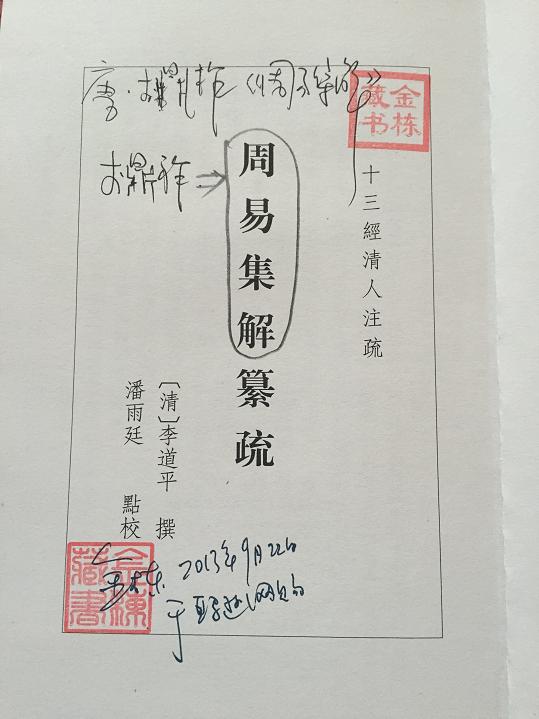 唐·李鼎祚《周易集解》
李鼎祚
金栋藏书
十三經清人注疏
周易集解纂疏
〔清〕李道平 撰
潘雨廷 點校
金棟藏書
2013年9月22日
于